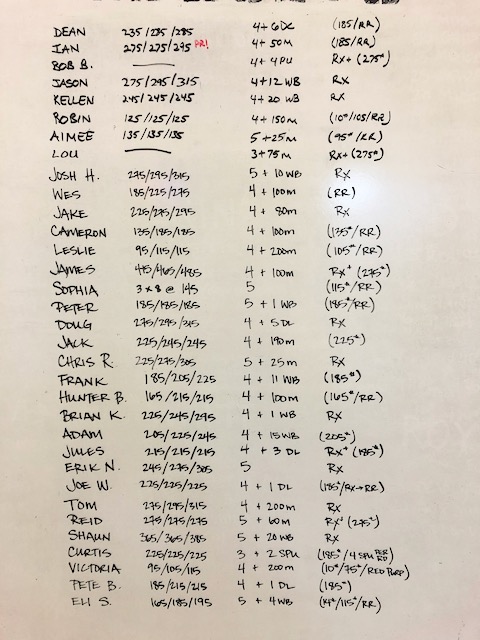 DEAN 235/235/285 4+6DL (185/RR)
IAN 275/275/295 PR! 4+50M (185/RR)
BOB B. — 4+4PU RX+ (275#)
JASON 275/295/315 4+12 WB RX
KELLEN 245/245/245 4+20 WB RX
ROBIN 125/125/125 4+150M (10#/105/RR)
AIMEE 135/135/135 5+25M (95#/RR)
LOU — 3+75M RX+ (275#)
JOSH H. 275/295/315 5+10 WB RX
WES 185/225/275 4+100M (RR)
JAKE 225/275/295 4+80M RX
CAMERON 135/185/185 4+100M (135#/RR)
LESLIE 95/115/115 4+200M (105#/RR)
JAMES 415/465/485 4+100M RX+ (275#)
SOPHIA 3x8@145 5 (115#/RR)
PETER 185/185/185 5+1 WB (185#/RR)
DOUG 275/295/315 4+5DL RX
JACK 225/245/245 4+190M (225#)
CHRIS R. 225/275/305 5+25M RX
FRANK 185/205/225 4+11 WB (185#)
HUNTER B. 165/215/215 4+100M (165#/RR)
BRIAN K. 225/245/295 4+1 WB RX
ADAM 205/225/245 4+15WB (205#)
JULES 215/215/215 4+3 DL RX+ (185#)
ERIK N. 245/275/305 5 RX
JOE W. 225/225/225 4+1DL (185#/RX→RR)
TOM 275/295/315 4+200M RX
REID 275/275/275 5+60M RX+ (275#)
SHAUN 365/365/385 5+20 WB RX
CURTIS 225/225/225 3+2 SPU (185#/4 SPU PER RD)
VICTORIA 95/105/115 4+200M (10#/75#/RED PURP)
PETE B. 185/215/215 4+1DL (185#)
ELI S. 165/185/195 5+4WB (14#/115#/RR)